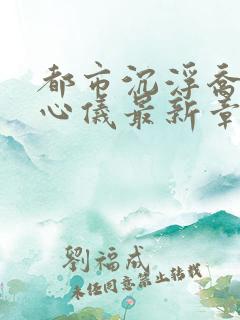 都市沉浮乔
心仪最新章
劉福成
未经同意禁止转载